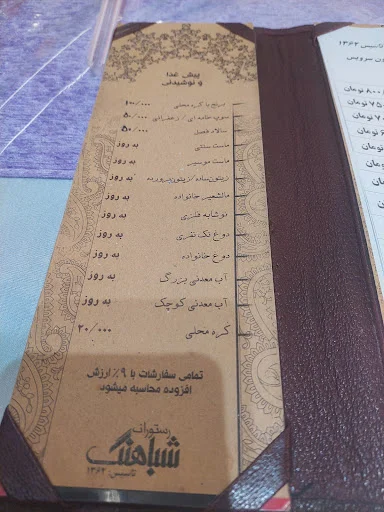 پیش غذا
و نوشیدنی
برنج با کره محلی ۱۰۰/۰۰۰
سوپ خامه ای / زعفرانی ۵۰/۰۰۰
سالاد فصل ۵۰/۰۰۰
ماست سنتی به روز
ماست موسیر به روز
زیتون ساده/زیتون پرورده به روز
ماالشعیر خانواده به روز
نوشابه فلزی به روز
دوغ تک نفری به روز
دوغ خانواده به روز
آب معدنی بزرگ به روز
آب معدنی کوچک به روز
کره محلی ۲۰/۰۰۰
تمامی سفارشات با ۹٪ ارزش
افزوده محاسبه میشود
رستوران
شباهنگ
تاسیس: ۱۳۶۲
تاسیس ۱۳۶۲
سرویس
تومان
تومان
تومان
تومان
تومان